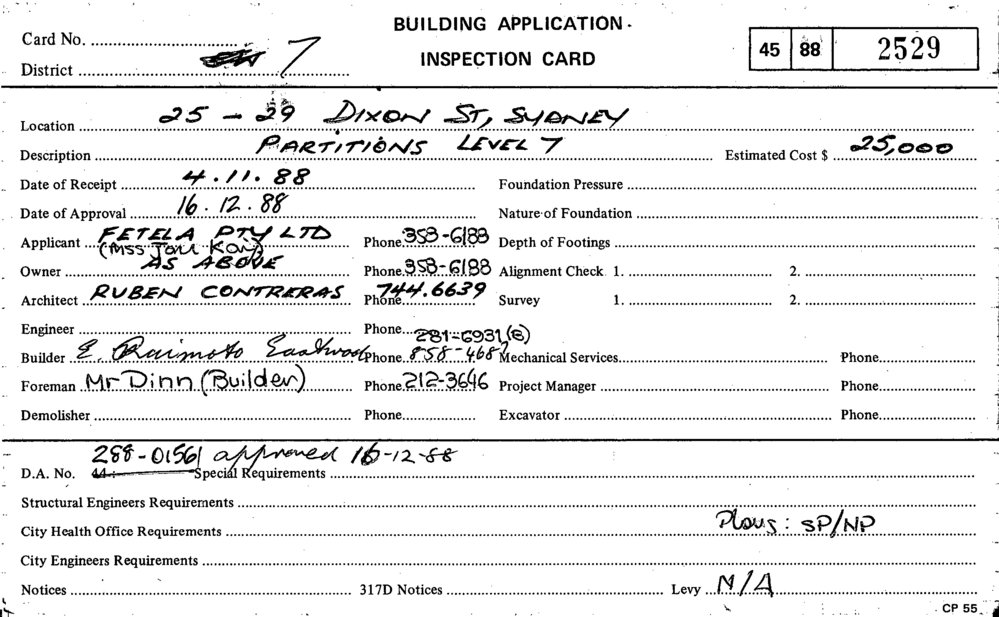 BUILDING APPLICATION
INSPECTION CARD
45 88 2529
Card No.
District 7
Location 25 - 29 DIXON ST, SYDNEY
Description PARTITIONS LEVEL 7 Estimated Cost $ 25,000
Date of Receipt 4.11.88 Foundation Pressure
Date of Approval 16.12.88 Nature of Foundation
Applicant FETELA PTY LTD Phone 358-6188 Depth of Footings
(MSS Kay)
Owner AS ABOVE Phone 358-6188 Alignment Check 1. 2.
Architect RUBEN CONTRERAS Phone 744.6639 Survey 1. 2.
Engineer Phone
281-6931 (B)
Builder E. Raimoto Eastwood Phone 858-4687 Mechanical Services Phone
Foreman Mr Dinn (Builder) Phone 212-3646 Project Manager Phone
Demolisher Phone Excavator Phone
288-01561 approved 16-12-88
D.A. No. 44: Special Requirements
Structural Engineers Requirements
City Health Office Requirements Plans: SP/NP
City Engineers Requirements
Notices 317D Notices Levy N/A
CP 55